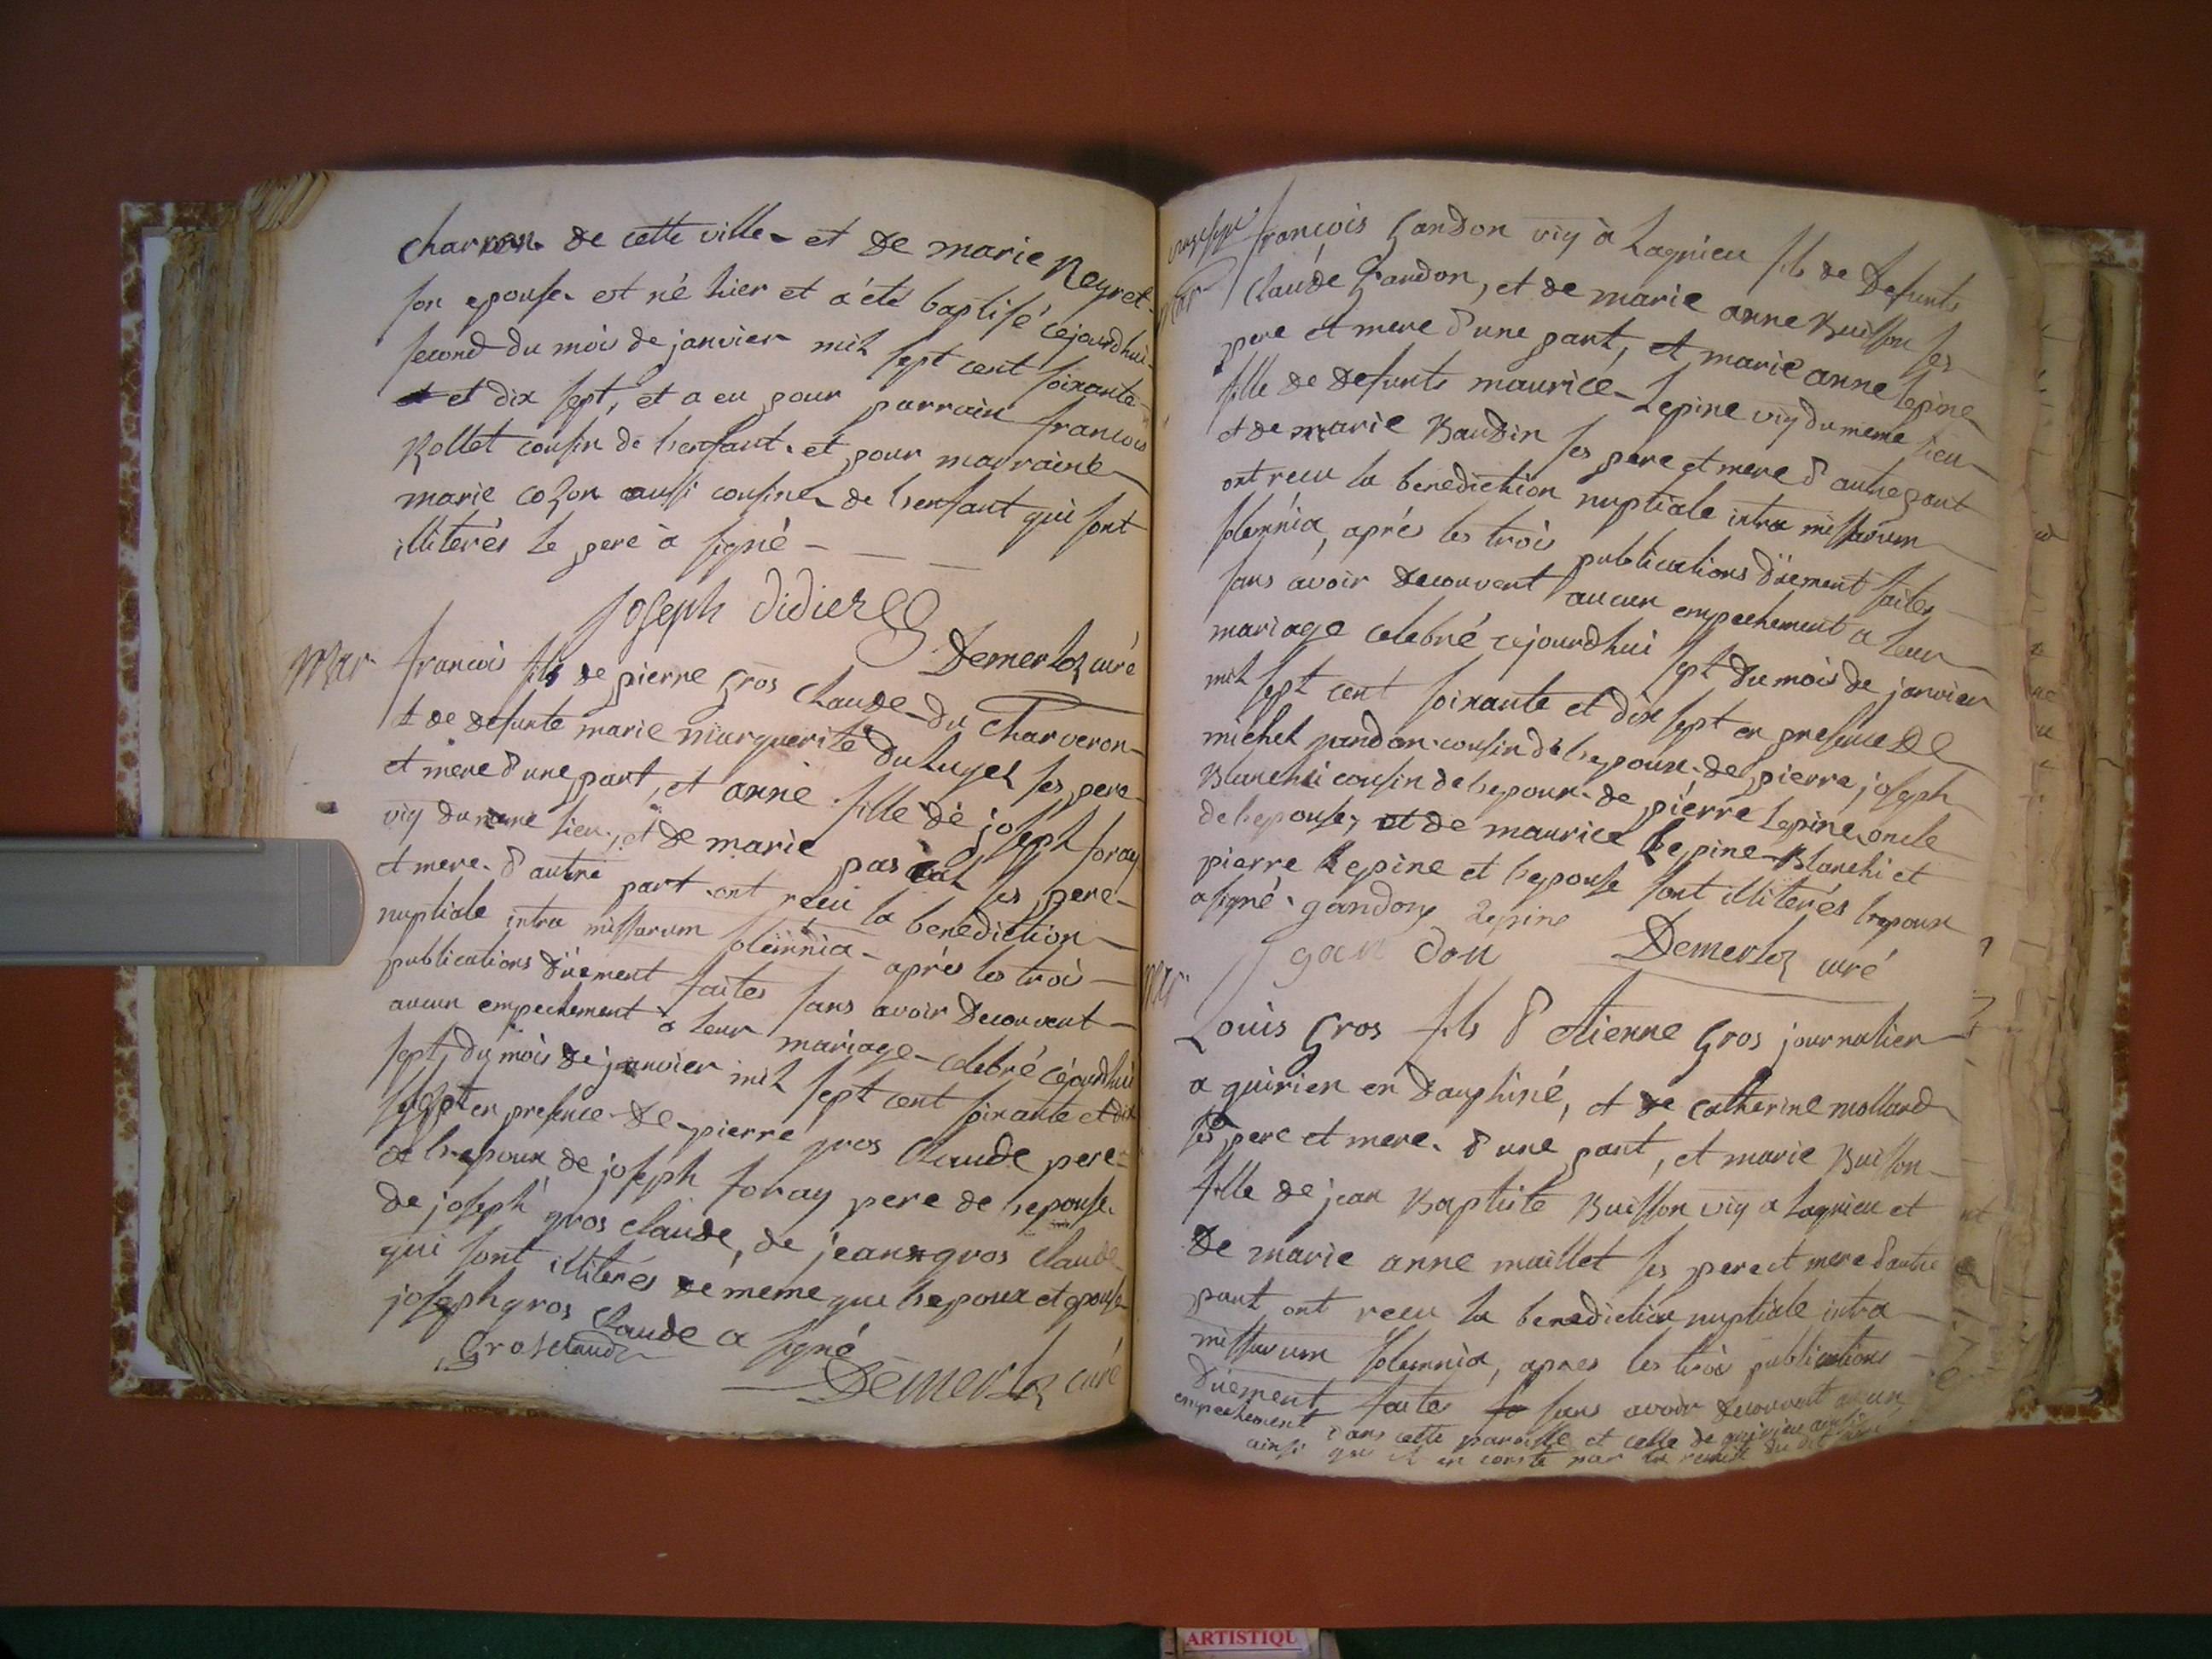 charron de cette ville et de marie Neyret
son epouse est né hier et a été baptisé cejourdhui
second du mois de janvier mil sept cent soixante
et dix sept, et a eu pour parrain francois
Rollet cousin de l'enfant et pour marraine
marie cozon aussi cousine de l'enfant qui sont
illiterés le pere à signé
Joseph didier
Demerloz curé
Mar
francois fils de pierre Gros Claude du Charveron
et de defunte marie marguerite du Luyset ses pere
et mere d'une part, et anne fille de joseph foray
vig du meme lieu, et de marie pascal ses pere
et mere d'autre part ont recu la benediction
nuptiale intra missarum solemnia après les trois
publications düement faites sans avoir decouvert
aucun empechement à leur mariage celebré cejourdhui
sept du mois de janvier mil sept cent soixante et dix
sept en presence de pierre gros Claude pere
de l'epoux de joseph foray pere de l'epouse
de joseph gros claude, de jean gros claude
qui sont illiterés de meme que l'epoux et epouse
joseph gros Claude a signé
Grosclaude
Demerloz curé
Mar
francois Gandon vig à Lagnieu fils de Defunts
Claude Gandon, et de marie anne Buisson ses
pere et mere d'une part, et marie anne Lepine
fille de defunts maurice Lepine vig du meme lieu
et de marie Baudin ses pere et mere d'autre part
ont recu la benediction nuptiale intra missarum
solemnia, aprés les trois publications düement faites
sans avoir decouvert aucun empechement a leur
mariage celebré cejourdhui sept du mois de janvier
mil sept cent soixante et dix sept en presence de
michel gandon cousin de l'epoux de pierre joseph
Blanchi cousin de l'epoux de pierre Lepine oncle
de l'epouse, et de maurice Lepine Blanchi et
pierre Lepine et l'epouse sont illiterés l'epoux
a signé gandon Lepine
gandon Demerloz curé
Mar
Louis Gros fils d'Etienne Gros journalier
a quirieu en Dauphiné, et de Catherine mollard
ses pere et mere d'une part, et marie Buisson
fille de jean Baptiste Buisson vig a Lagnieu et
de marie anne maillet ses pere et mere d'autre
part ont recu la benediction nuptiale intra
missarum solemnia, apres les trois publications
düement faites sans avoir decouvert aucun
empechement dans cette paroisse et celle de quirieu
ainsi que il en conste par la remise du dit
ARTISTIQU